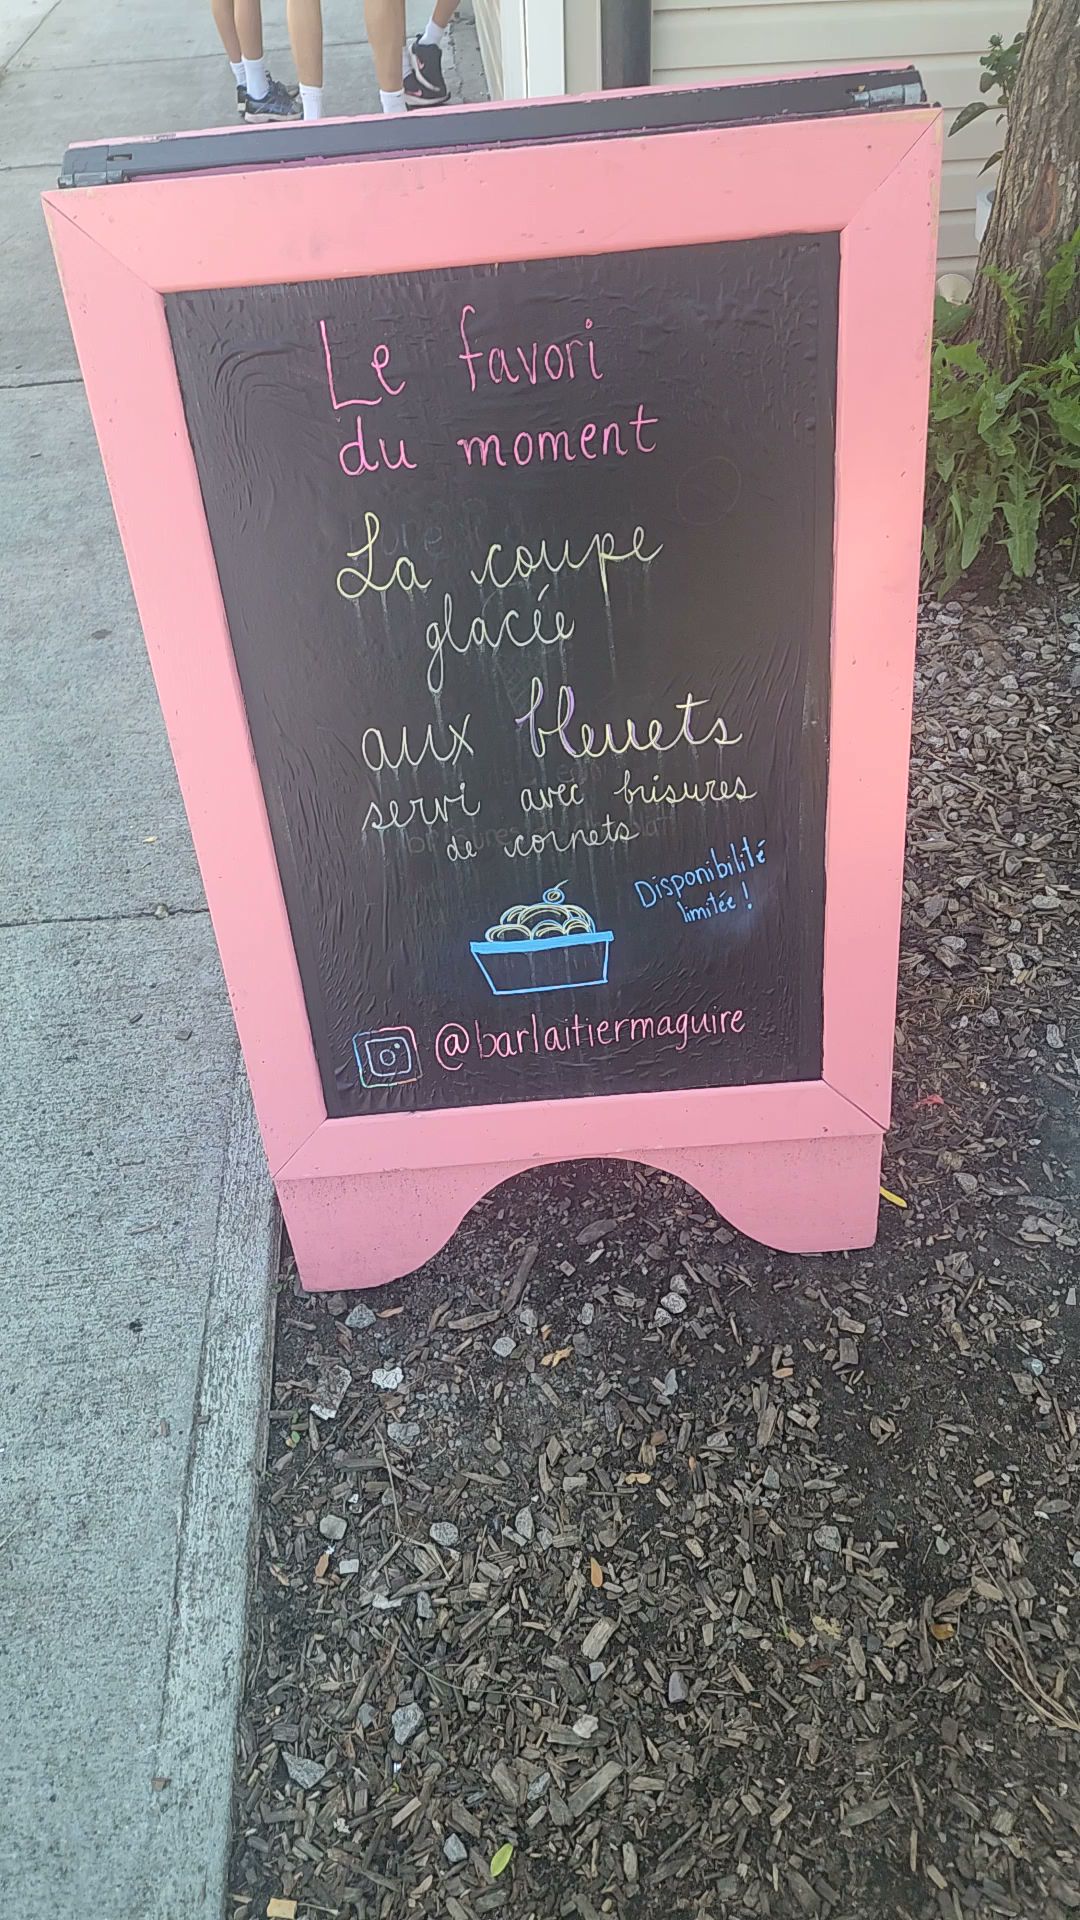 Le favori
du moment
La coupe
glacée
aux bleuets
servi avec brisures
de cornets
Disponibilité
limitée!
@barlaitiermaguire